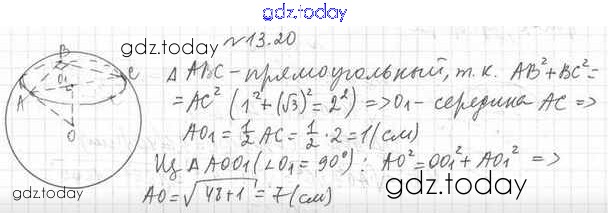 gdz.today
№13.20
gdz.today
Δ ABC - прямоугольный, т.к. AB²+BC²=
= AC² (1²+(√3)²=2²) => O1 - середина AC =>
AO1 = 1/2 AC = 1/2 · 2 = 1 (см)
Из Δ AOO1 (∠O1 = 90°): AO² = OO1² + AO1² =>
AO = √48+1 = 7 (см)
gdz.today
gdz.today
B
O1
C
A
O